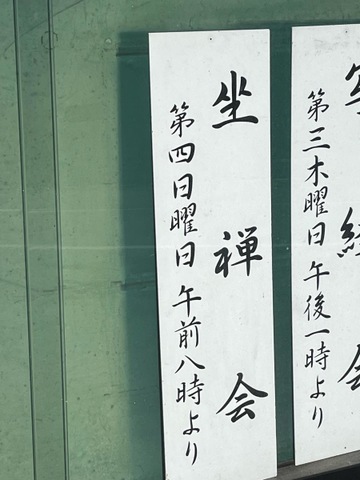 写経会
第三木曜日午後一時より
坐禅会
第四日曜日午前八時より